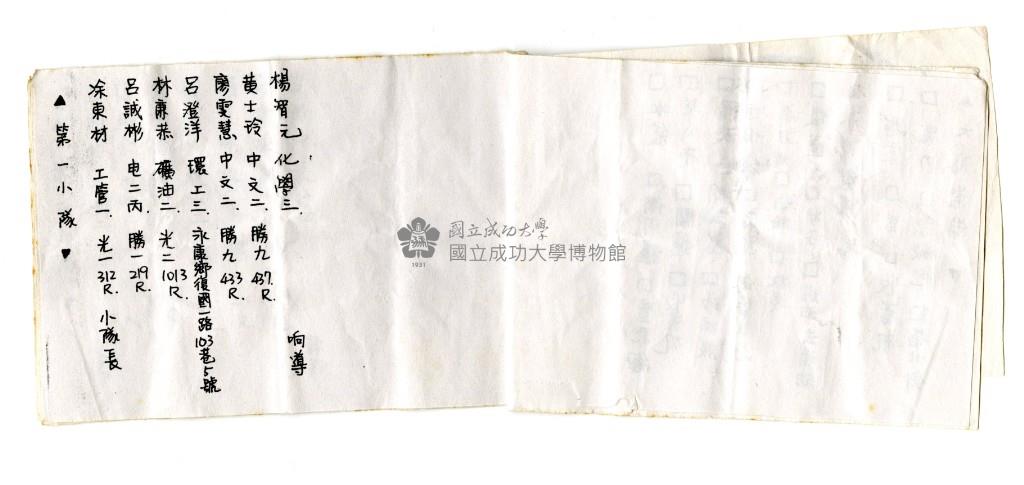 ▲ 第一小隊 ▼
凃東材 工管一. 光一 312 R. 小隊長
呂誠彬 电二丙. 勝一 219 R.
林康恭 礦油二. 光二 1013 R.
呂澄洋 環工三. 永康鄉復國一路103巷5號
廖雯慧 中文二. 勝九 433 R.
黃士玲 中文二. 勝九 437. R.
楊智元 化學三. 响導
國立成功大學
國立成功大學博物館
1931